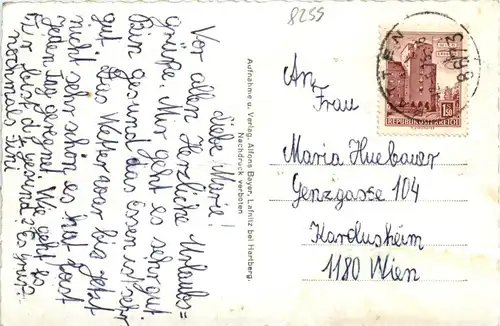 8255
Liebe Marie!
Vor allem Herzliche Urlaubs=
grüße. Mir geht es sehr gut
Bin gesund das Essen ist sehr
gut. Das Wetter war bis jetzt
nicht sehr schön es hat fast
jeden Tag geregnet. Wie geht es
Dir bist du gesund? Es grüßt
nochmals Ihre
Aufnahme u. Verlag, Alfons Bayer, Lafnitz bei Hartberg.
Nachdruck verboten
REPUBLIK ÖSTERREICH
An
Frau
Maria Huebauer
Genzgasse 104
Kardusheim
1180 Wien